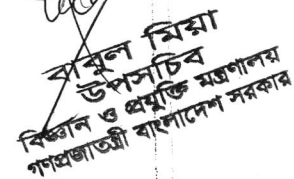 বাবুল মিয়া
উপসচিব
বিজ্ঞান ও প্রযুক্তি মন্ত্রণালয়
গণপ্রজাতন্ত্রী বাংলাদেশ সরকার